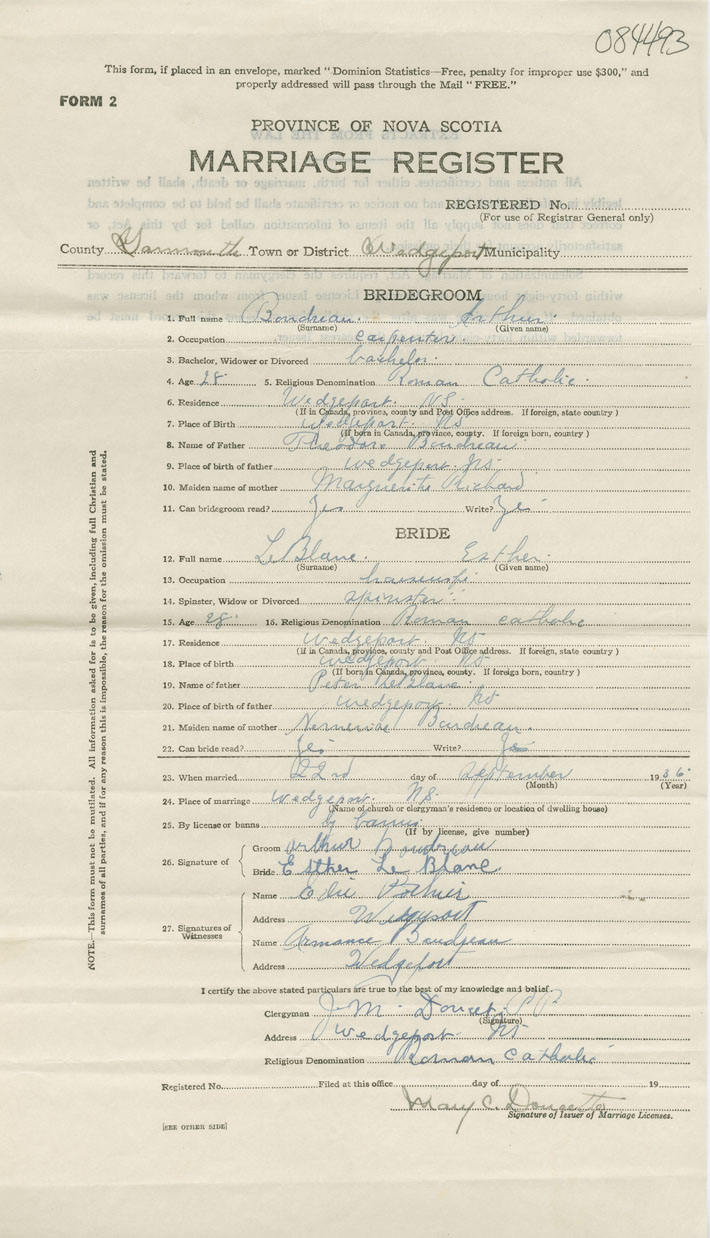 084493
This form, if placed in an envelope, marked "Dominion Statistics—Free, penalty for improper use $300," and
properly addressed will pass through the Mail "FREE."
FORM 2
PROVINCE OF NOVA SCOTIA
MARRIAGE REGISTER
REGISTERED No.
(For use of Registrar General only)
County Yarmouth Town or District Wedgeport Municipality
BRIDEGROOM
1. Full name Boudreau. Arthur.
(Surname) (Given name)
2. Occupation carpenter.
3. Bachelor, Widower or Divorced bachelor.
4. Age 28. 5. Religious Denomination Roman Catholic.
6. Residence Wedgeport. NS.
(If in Canada, province, county and Post Office address. If foreign, state country)
7. Place of Birth Wedgeport. NS
(If born in Canada, province, county. If foreign born, country)
8. Name of Father Theodore Boudreau.
9. Place of birth of father Wedgeport. NS.
10. Maiden name of mother Marguerite Richard
11. Can bridegroom read? Yes Write? Yes
BRIDE
12. Full name LeBlanc. Esther.
(Surname) (Given name)
13. Occupation
14. Spinster, Widow or Divorced spinster.
15. Age 28. 16. Religious Denomination Roman catholic
17. Residence Wedgeport. NS
(If in Canada, province, county and Post Office address. If foreign, state country)
18. Place of birth Wedgeport. NS
(If born in Canada, province, county. If foreign born, country)
19. Name of father Peter LeBlanc.
20. Place of birth of father Wedgeport. NS
21. Maiden name of mother Boudreau.
22. Can bride read? Yes Write? Yes
23. When married 22nd day of September 1936.
(Month) (Year)
24. Place of marriage Wedgeport. NS.
(Name of church or clergyman's residence or location of dwelling house)
25. By license or banns by banns
(If by license, give number)
26. Signature of
Groom Arthur Boudreau
Bride Esther Le Blanc.
27. Signatures of Witnesses
Name Elie Pothier
Address Wedgeport
Name Armance Boudreau
Address Wedgeport
I certify the above stated particulars are true to the best of my knowledge and belief.
Clergyman J. M. Doucet. P.P.
(Signature)
Address Wedgeport. NS
Religious Denomination Roman Catholic
Registered No. Filed at this office day of 19
Mary C. Doucette
Signature of Issuer of Marriage Licenses.
[SEE OTHER SIDE]
NOTE.—This form must not be mutilated. All information asked for is to be given, including full Christian and
surnames of all parties, and if for any reason this is impossible, the reason for the omission must be stated.